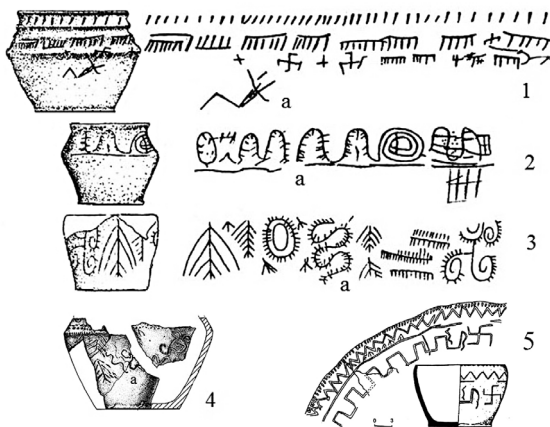 a
1
a
2
a
3
a
4
5
0 3